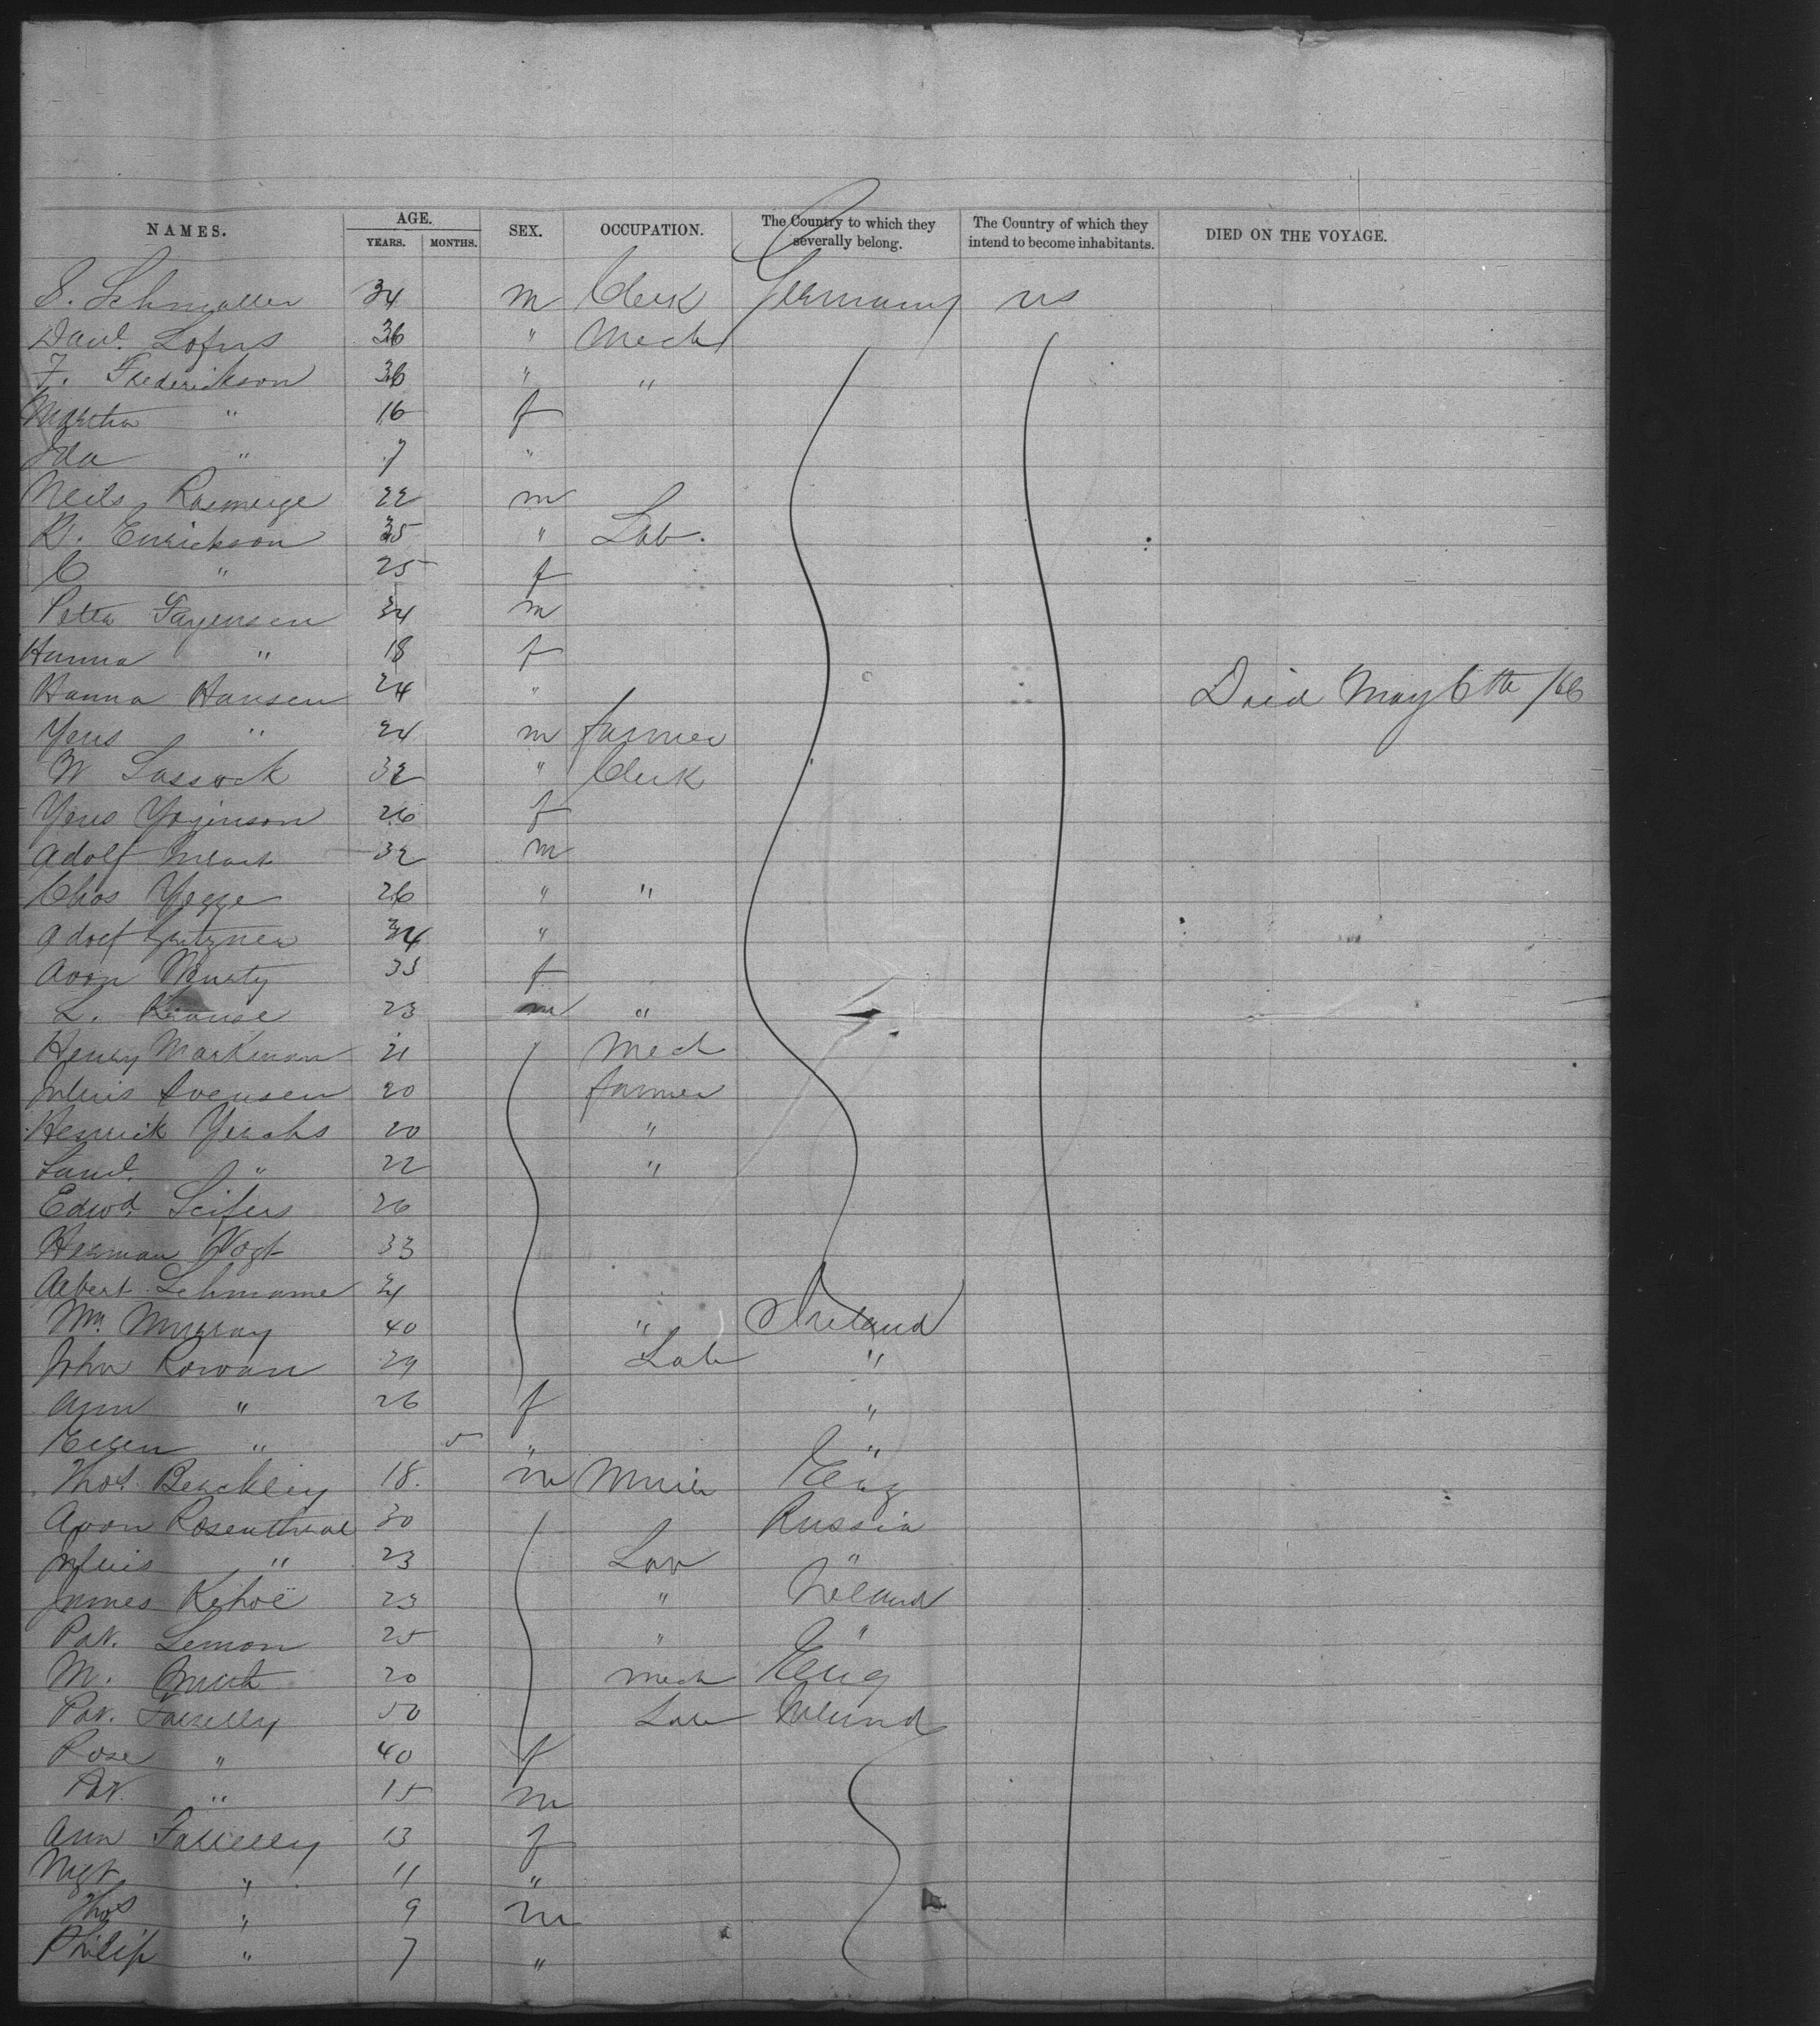 NAMES. AGE. YEARS. MONTHS. SEX. OCCUPATION. The Country to which they severally belong. The Country of which they intend to become inhabitants. DIED ON THE VOYAGE.
S. Schmaller 34 m Clerk Germany us
Danl. Lofus 36 " Mech
F. Frederickson 36 " "
Martha " 16 f
Ida " 7 "
Neils 22 m
R. Enrickson 35 " Lab.
C " 25 f
Peter 34 m
Hanna " 18 f
Hanna Hansen 24 " Died May 6th /66
Yens " 24 m farmer
W Sassock 32 " Clerk
Yens Yoginson 26 f
Adolf 32 m
Chas Yegge 26 " "
Adolf 34 "
33 f
L. Krause 23 m "
Henry Markman 21 Mech
Julius Svensen 20 farmer
Henrick 20 "
Saml. " 22 "
Edwd. Seifers 26
Herman Vogt 33
Albert Lehmame
Wm. Murray 40 " Ireland
John Rowan 29 Lab "
Ann " 26 f "
Ellen " 5 " "
Thos. 18. m Miner Eng
Aaron Rosenthral 30 Russia
Julius " 23 Lab "
James Kehoe 23 " Ireland
Pat. Lemon 25 " "
M. 20 Mech Eng
Pat. 50 Lab Ireland
Rose " 40 f
Pat. " 15 m
Ann 13 f
Mgt " 11 "
Thos " 9 m
Philip " 7 "